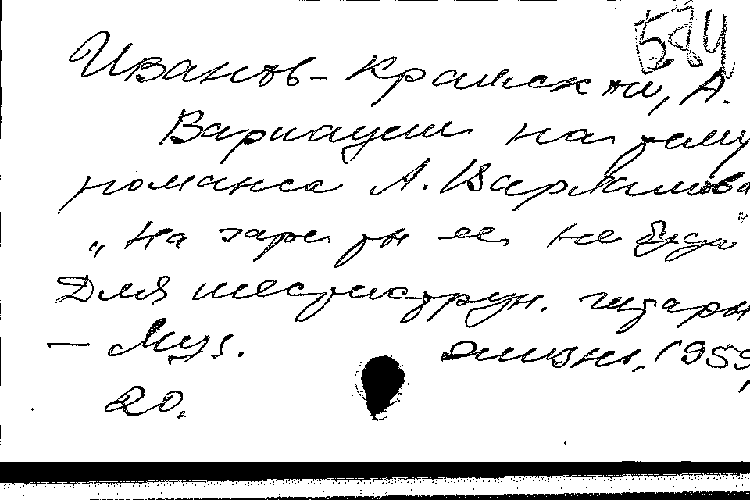 584
Иванов-Крамской, А.
Вариации на тему
романса А. Варламова
„На заре ты ее не буди"
Для шестиструн. гитары
— Муз. жизнь, 1959,
20.